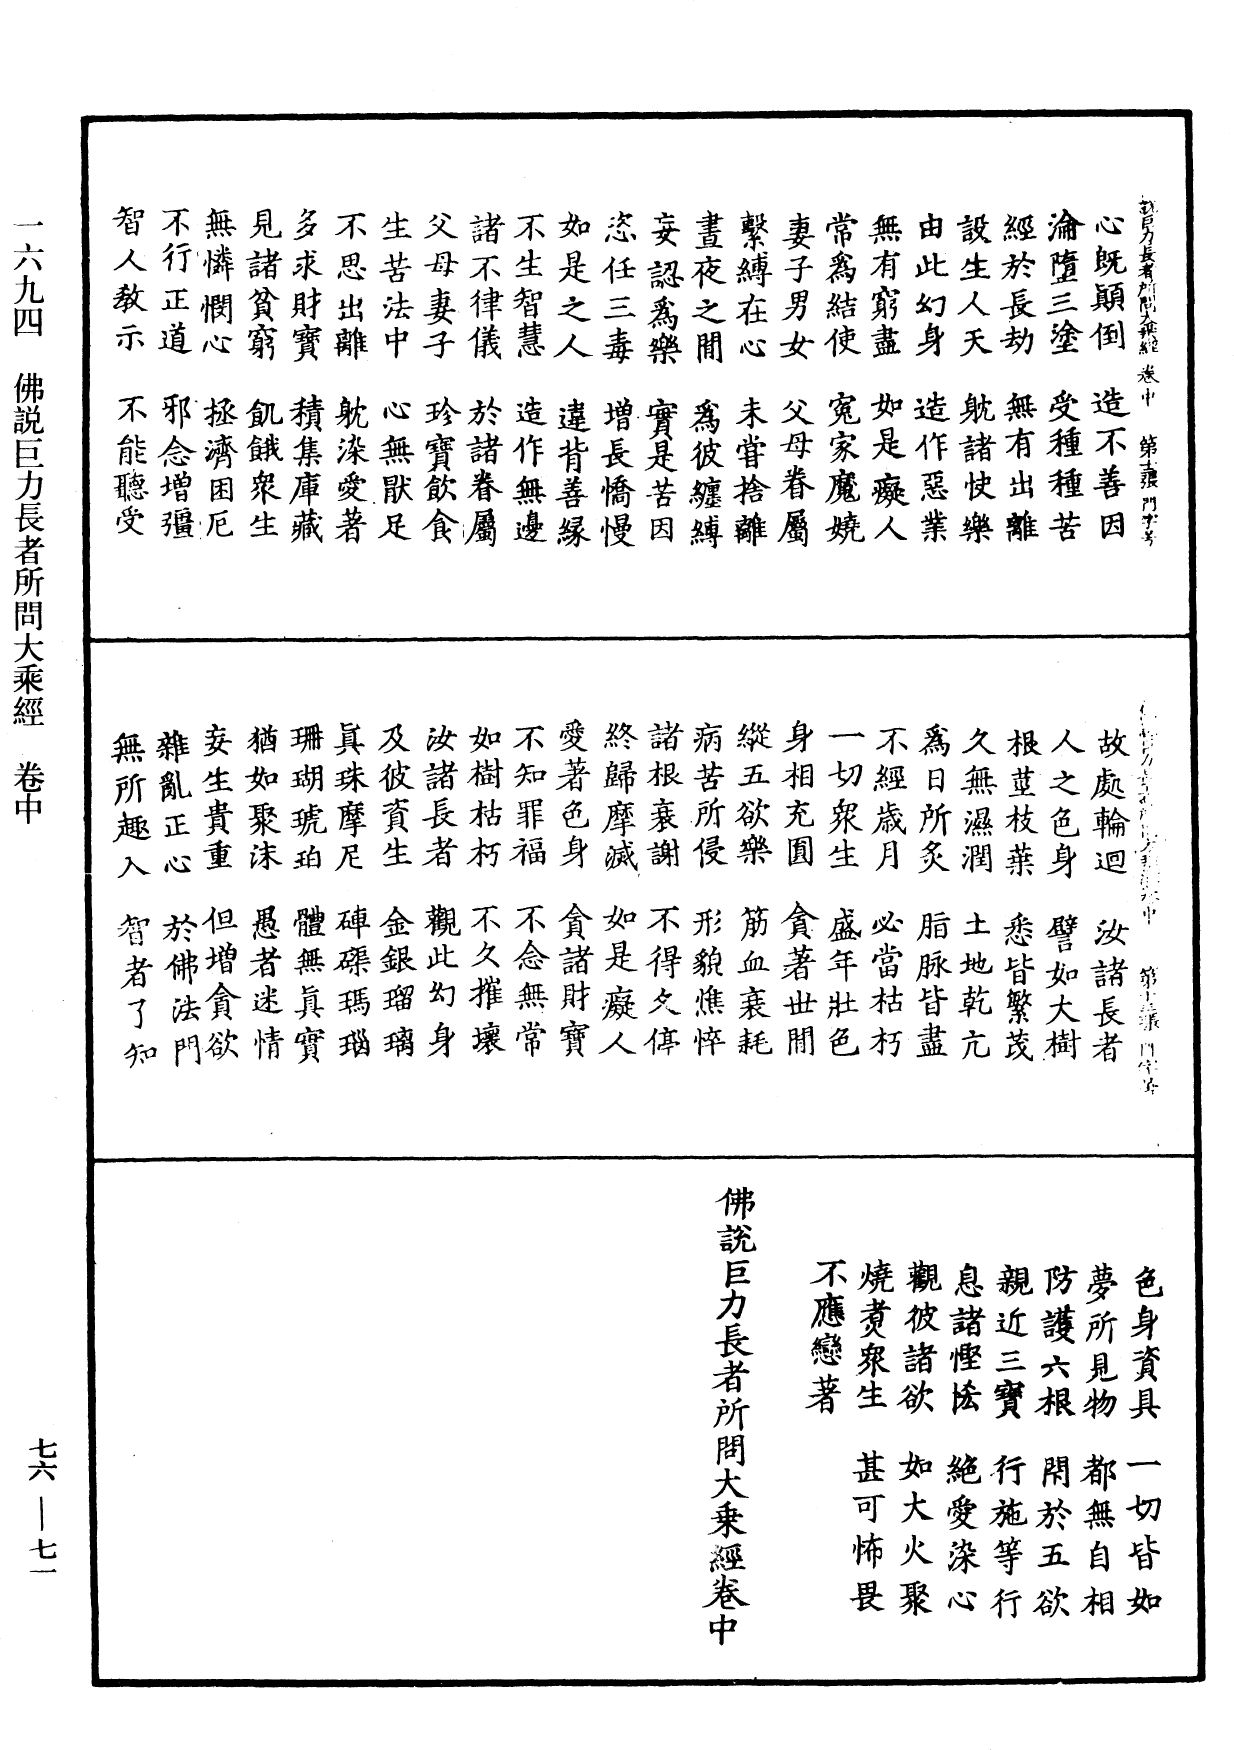 心既顚倒　造不善因
淪墮三塗　受種種苦
經於長劫　無有出離
設生人天　躭諸快樂
由此幻身　造作惡業
無有窮盡　如是癡人
常爲結使　寃家魔嬈
妻子男女　父母眷屬
繫縛在心　未甞捨離
晝夜之閒　爲彼纏縛
妄認爲樂　實是苦因
恣任三毒　增長憍慢
如是之人　違背善緣
不生智慧　造作無邊
諸不律儀　於諸眷屬
父母妻子　珍寶飲食
生苦法中　心無猒足
不思出離　躭染愛著
多求財寶　積集庫藏
見諸貧窮　飢餓衆生
無憐憫心　拯濟困厄
不行正道　邪念增彊
智人教示　不能聽受
故處輪迴　汝諸長者
人之色身　譬如大樹
根莖枝葉　悉皆繁茂
久無濕潤　土地乾亢
爲日所炙　脂脉皆盡
不經歲月　必當枯朽
一切衆生　盛年壯色
身相充圓　貪著世閒
縱五欲樂　筋血衰耗
病苦所侵　形貌憔悴
諸根衰謝　不得久停
終歸摩滅　如是癡人
愛著色身　貪諸財寶
不知罪福　不念無常
如樹枯朽　不久摧壞
汝諸長者　觀此幻身
及彼資生　金銀瑠璃
眞珠摩尼　硨磲瑪瑙
珊瑚琥珀　體無眞實
猶如聚沫　愚者迷情
妄生貴重　但增貪欲
雜亂正心　於佛法門
無所趣入　智者了知
色身資具　一切皆如
夢所見物　都無自相
防護六根　閑於五欲
親近三寶　行施等行
息諸慳恡　絕愛染心
觀彼諸欲　如大火聚
燒煑衆生　甚可怖畏
不應戀著
佛說巨力長者所問大乗經卷中
一六九四　佛説巨力長者所問大乘經　卷中
七六—七一